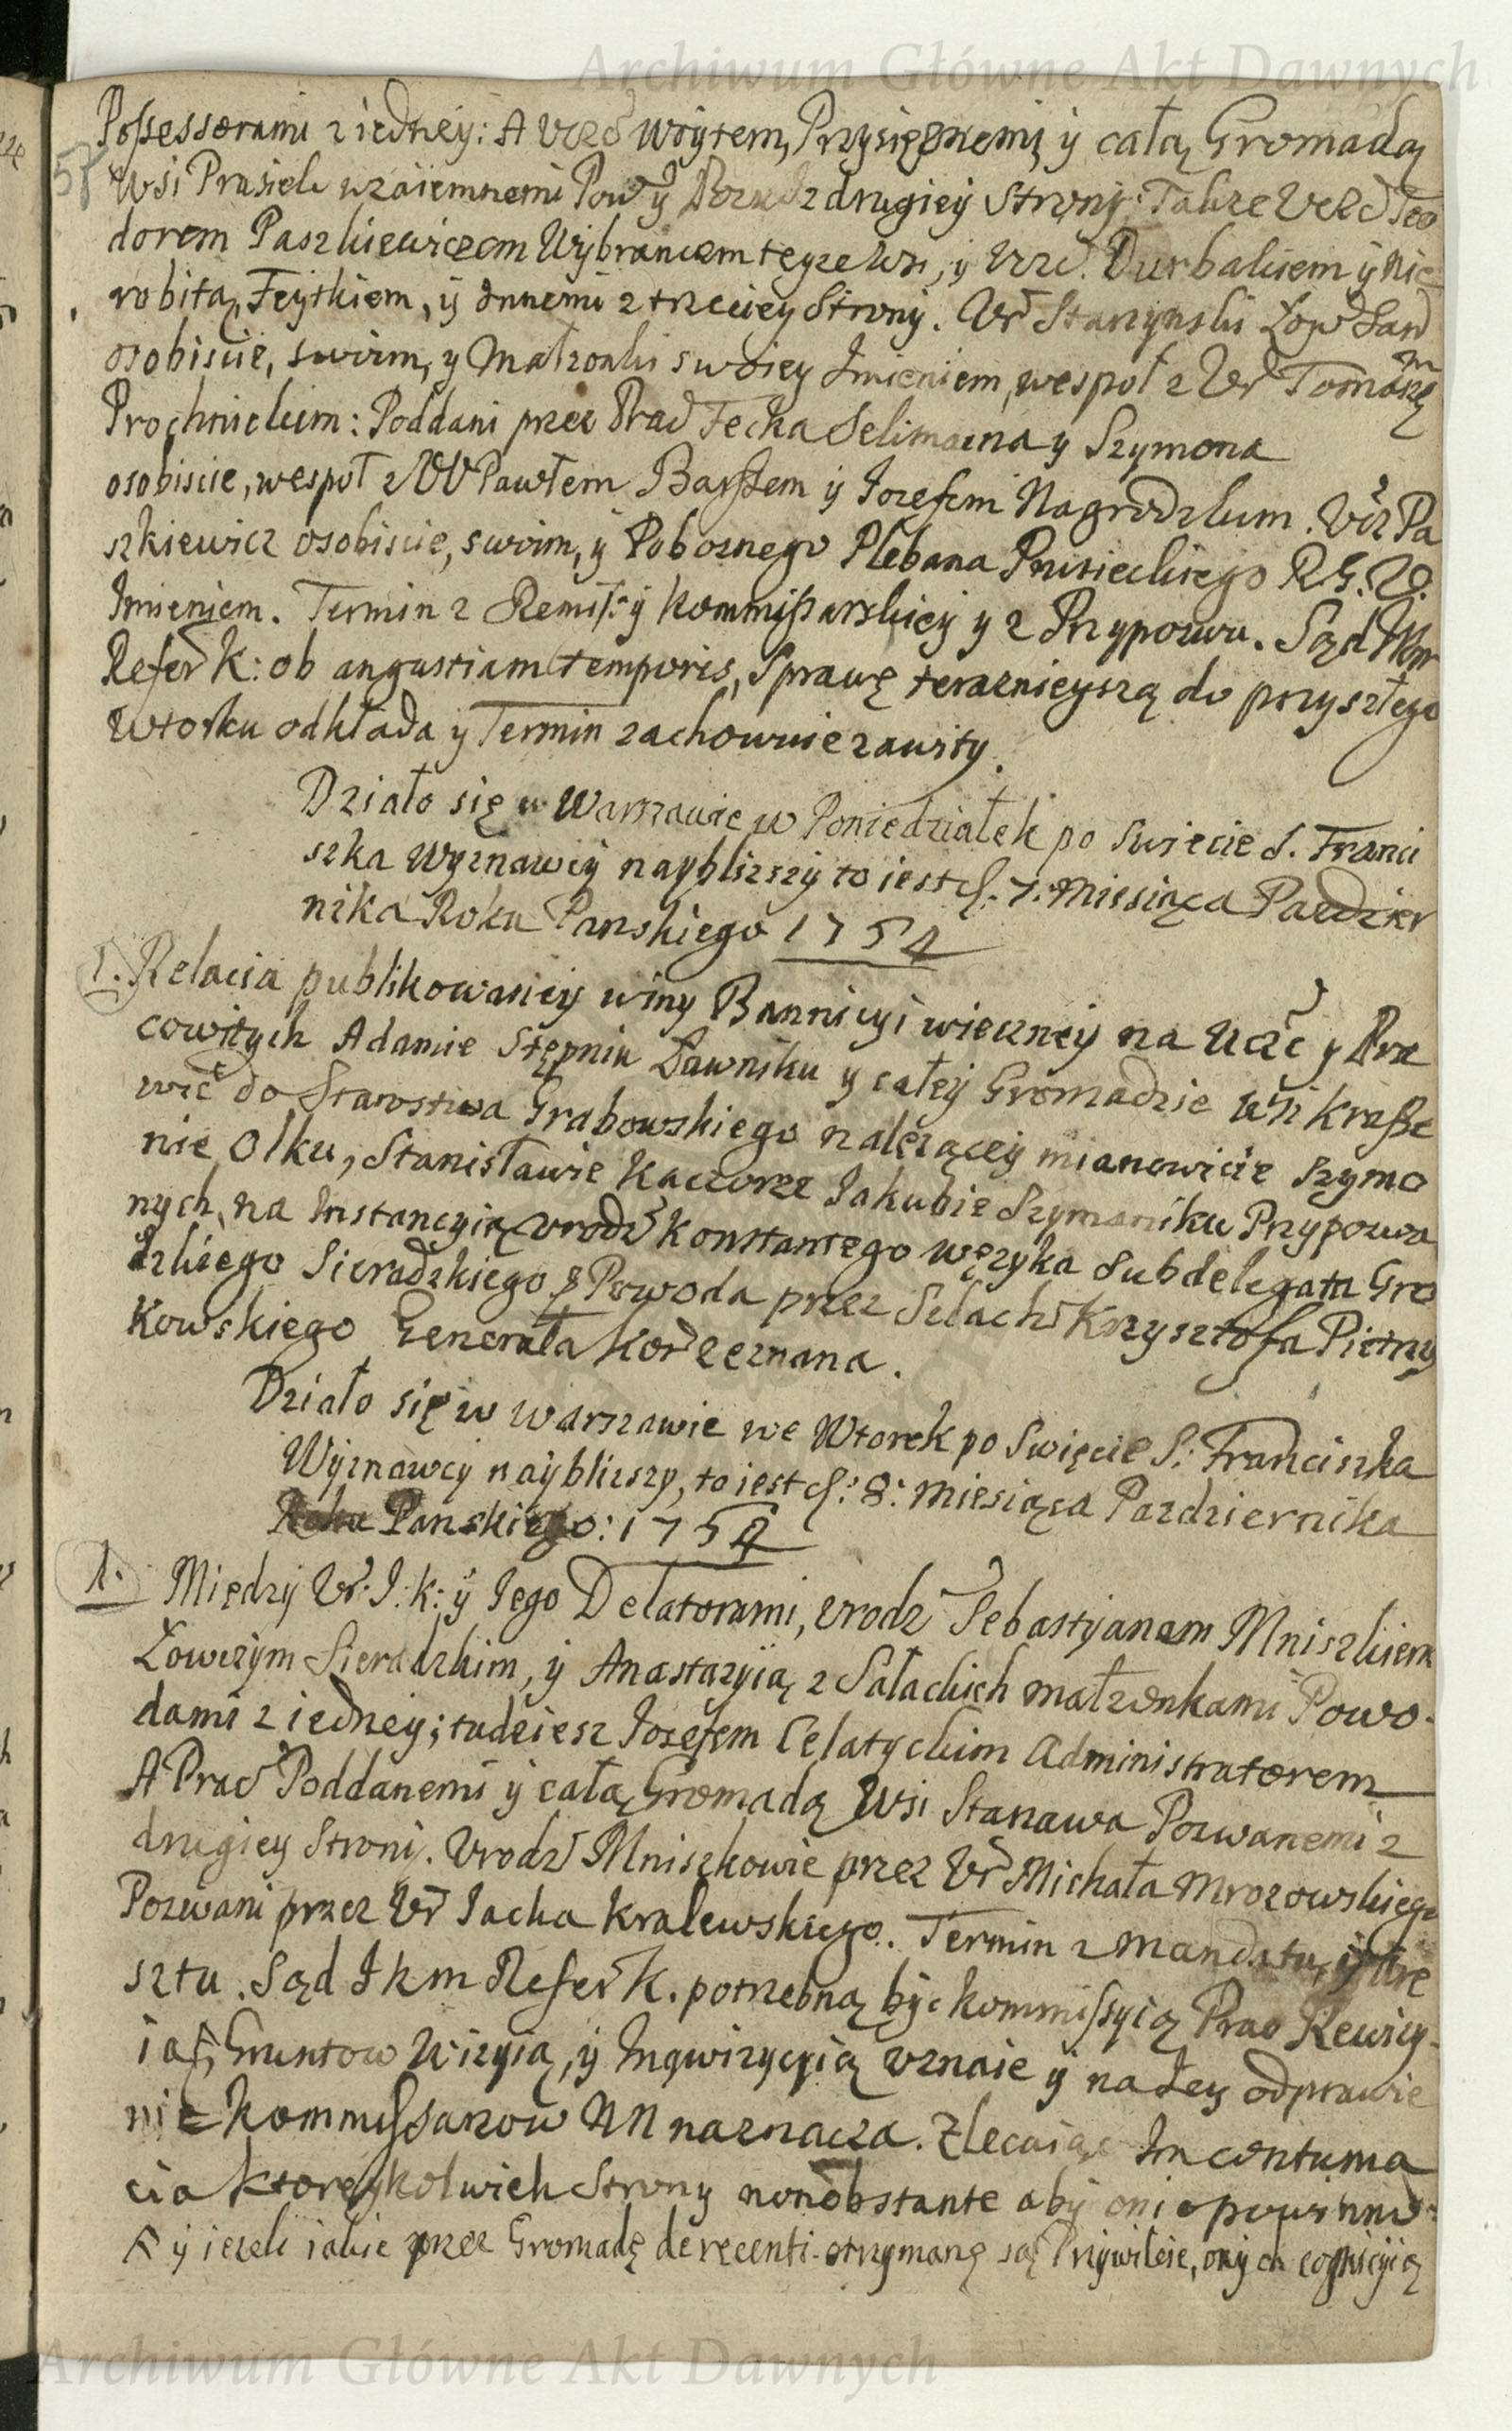 Archiwum Główne Akt Dawnych
Possessorami z iedney: A Uczć Woytem, Przysięznemi y całą Gromadą
58
Wsi Prasiek wzaiemnemi Pow y Pozw z drugiey Strony: Takze Uczć Teo
dorem Paszkiewiczem Wybrancem teyze Wsi, y Urz. Durbakiem y Nie
robitą, Feytkiem, y Innemi z trzeciey Strony. Ur Starzynski Low San
osobiscie, swoim, y Małzonki swoiey Imieniem, wespoł z Ur Tomasze
m
Prochnickim: Poddani przez Prac Fecka Selimaena y Szymona
osobiscie, wespoł z UU Pawłem Barssem y Iozefem Nagrodzkim. Ucz Pa
szkiewicz osobiscie, swoim, y Poboznego Plebana Prusieckiego R. G. U.
Imieniem. Termin z Remiss: y Kommissarskiey y z Przypozwu. Sąd IKM
Refer K: ob angustiam temporis, Sprawę teraznieyszą do przyszłego
Wtorku odkłada y Termin zachowuie zawity.
Działo się w Warszawie w Poniedziałek po Swięcie S. Franci
szka Wyznawcy nayblizszy to iest d. 7. Miesiąca Pazdzier
nika Roku Panskiego 1754
1. Relacia publikowaney winy Bannicyi wieczney na Uczć y Pra
cowitych Adamie Stępniu Ławniku y całey Gromadzie Wsi Krasze
wic do Starostwa Grabowskiego nalezącey mianowicie Szymo
nie Olku, Stanisławie Kaczorze Iakubie Szymaniku Przypozwa
nych, na Instancyią Urodz Konstantego Węzyka Subdelegata Gro
dzkiego Sieradzkiego Powoda przez Szlach Krzysztofa Pietrzy
kowskiego Generała Kor zeznana.
Działo się w Warszawie we Wtorek po Swięcie S: Franciszka
Wyznawcy nayblizszy, to iest d: 8: Miesiąca Pazdziernika
Roku Panskiego: 1754
1. Między Ur: I: K: y Iego Delatorami, Urodz Sebastyanem Mniszkiem
Łowczym Sieradzkim, y Anastazyią z Sałackich małzonkami Powo-
dami z iedney; tudziesz Iozefem Celatyckim Administratorem
A Prac Poddanemi y całą Gromadą Wsi Starzawa Pozwanemi z
drugiey Strony. Urodz Mniszkowie przez Ur Michała Mrozowskiego
Pozwani przez Ur Iacka Kralewskiego. Termin z Mandatu, y Are
sztu. Sąd Ikm Refer K. potrzebną być Kommissyią Praw Rewizy-
ią, Gruntow Wizyią, y Inqwizycyią uznaie y na Iey odprawie
nie Kommissarzow NN naznacza. Zlecaiąc In contuma
cia ktoreykolwiek Strony nonobstante aby oni powinno-
y iezeli iakie przez Gromadę de recenti otrzymane są Przywileie, onych
Archiwum Główne Akt Dawnych